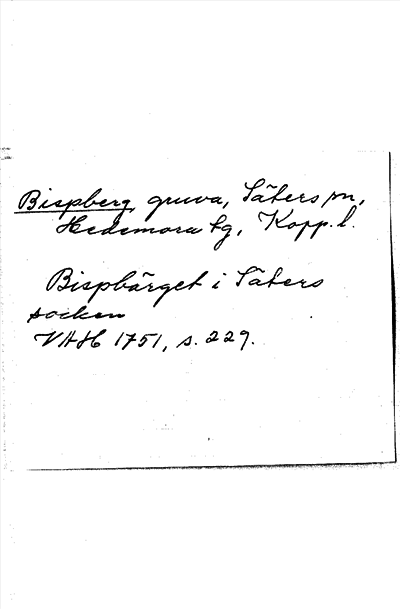 Bispberg, gruva, Säters sn,
Hedemora tg, Kopp. l.
Bispbärget i Säters
socken
VAH 1751, s. 229.